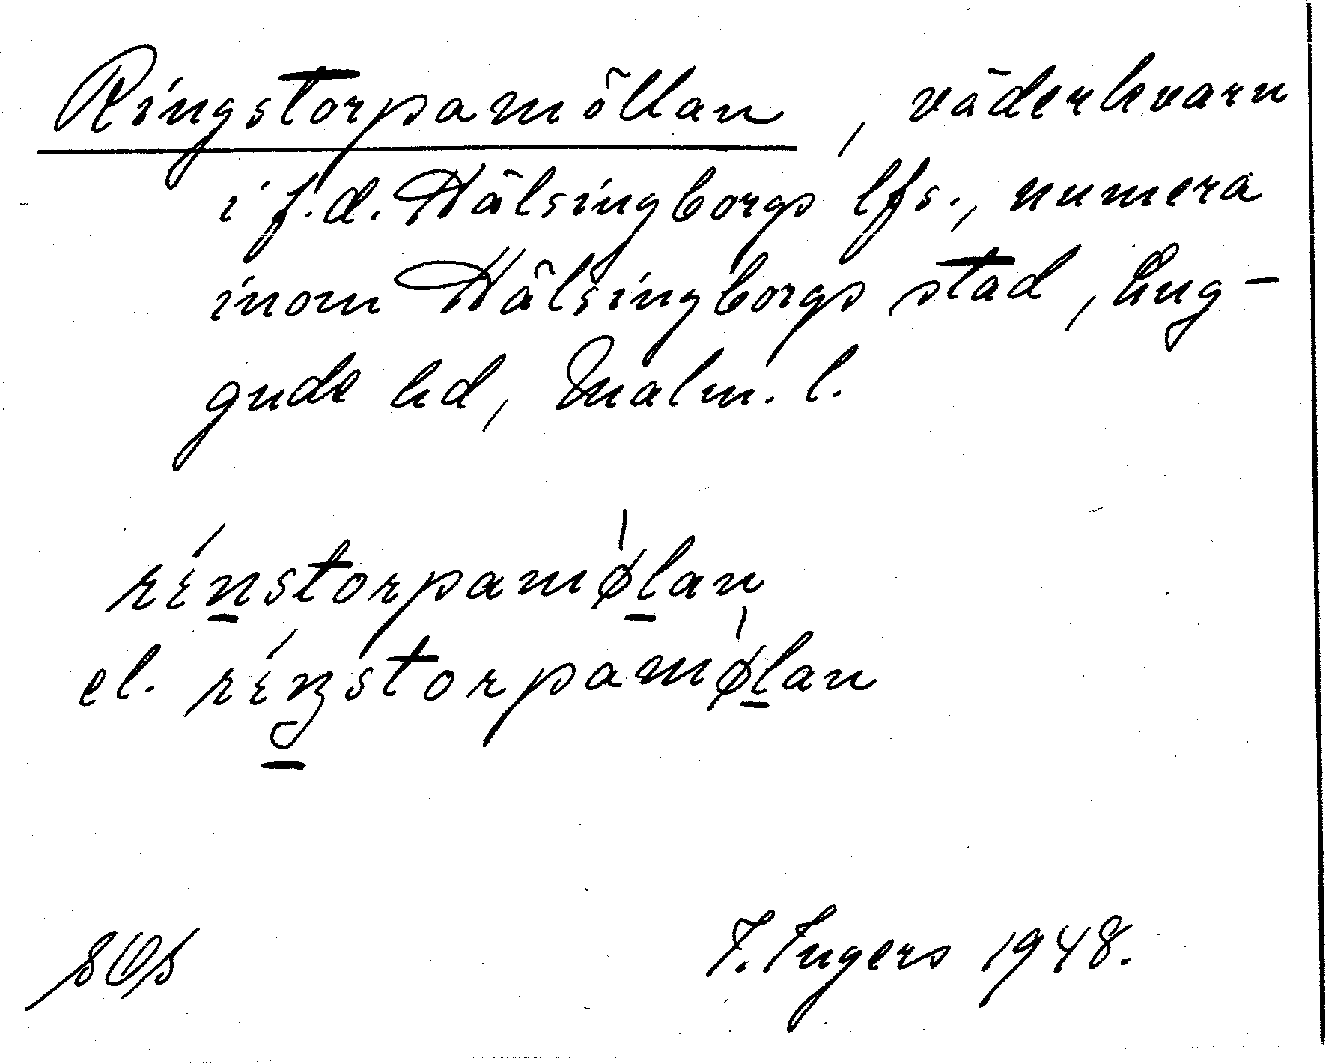 Ringstorpamöllan, väderkvarn
i f.d. Hälsingborgs lfs., numera
inom Hälsingborgs stad, Lug-
gude hd, Malm. l.
rínstorpamø̀lan
el. ríŋstorpamø̀lan
I. Ingers 1948.